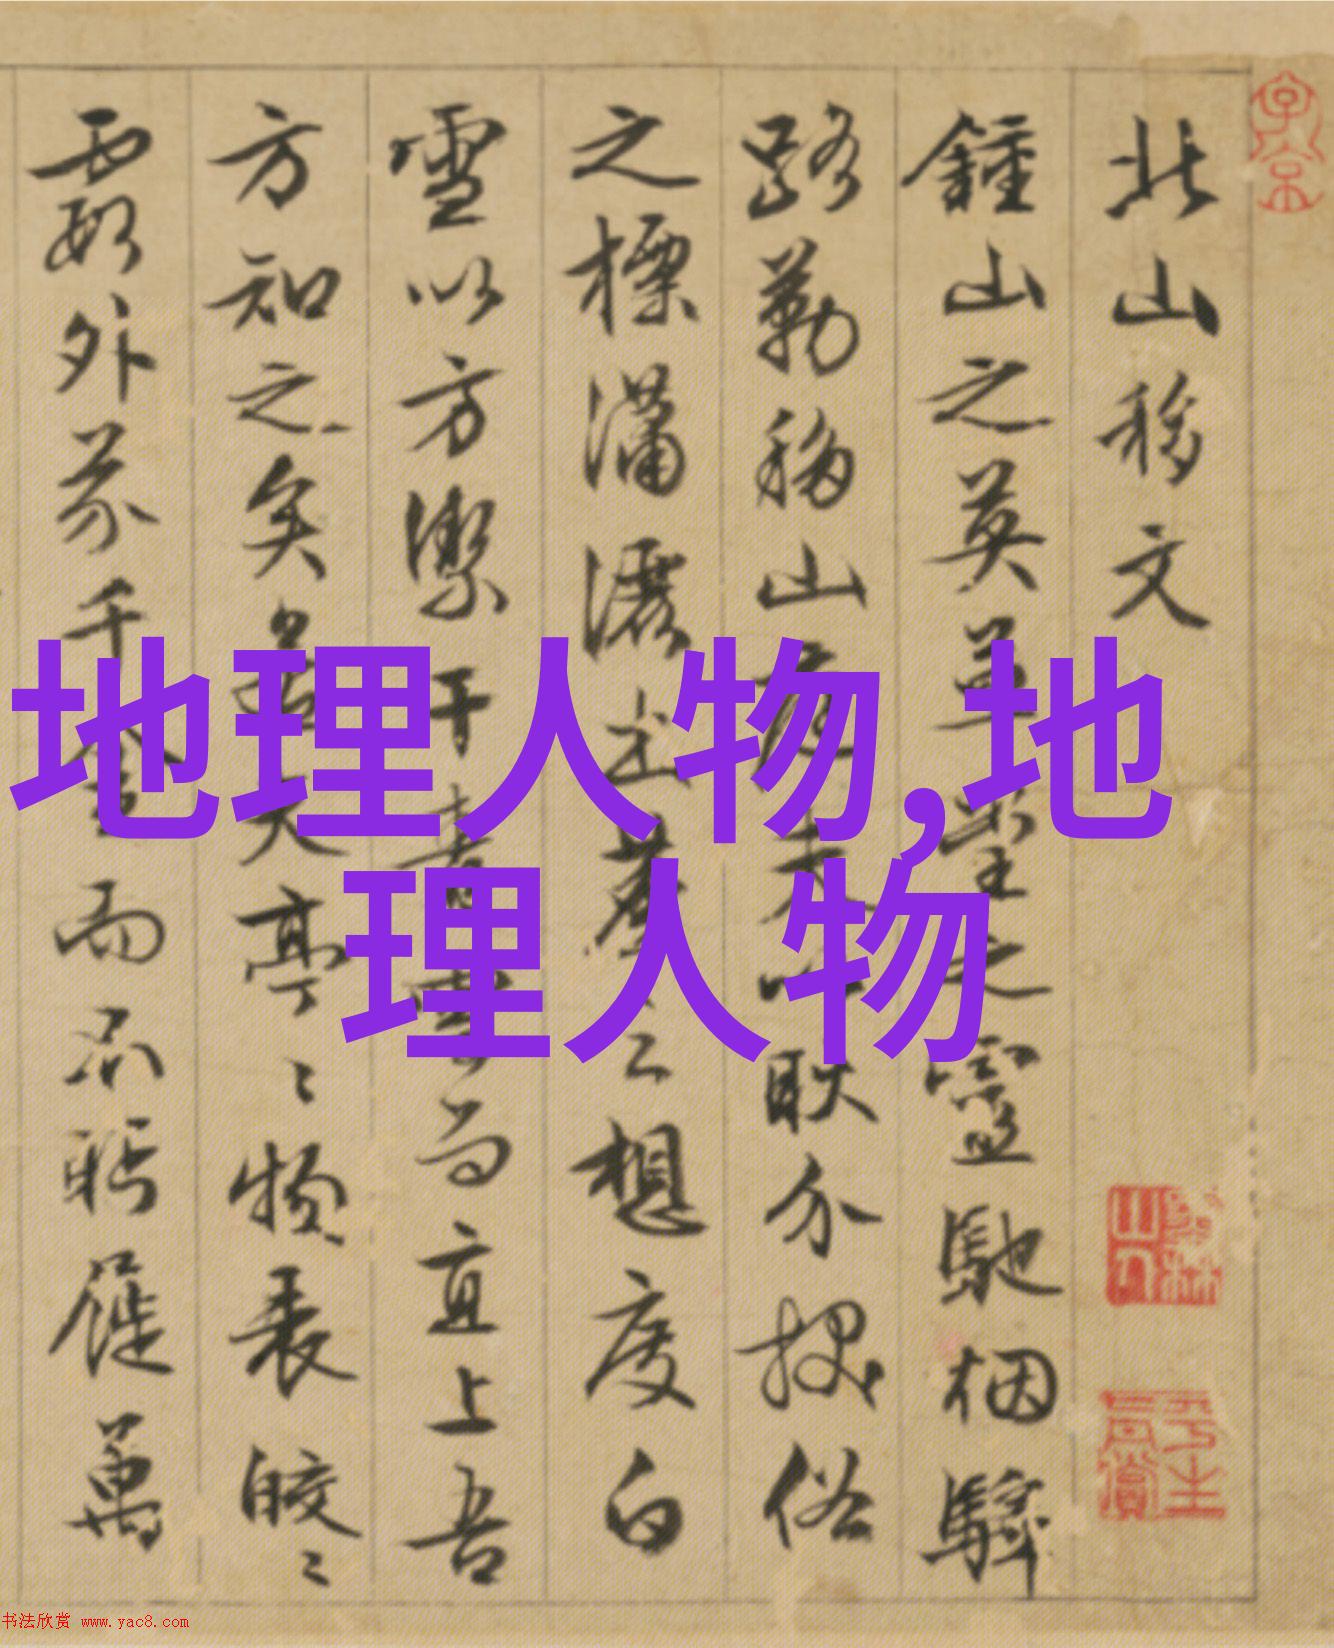 北山移文
鍾山之英草堂之靈馳烟驛
路勒移山庭夫以耿介拔俗
之標瀟灑出塵之想度白
雪以方潔干青雲而直上吾
方知之矣若其亭亭物表皎皎
霞外芥千金而不眄屣萬
地理人物,地
理人物
书法欣赏 www.yac8.com